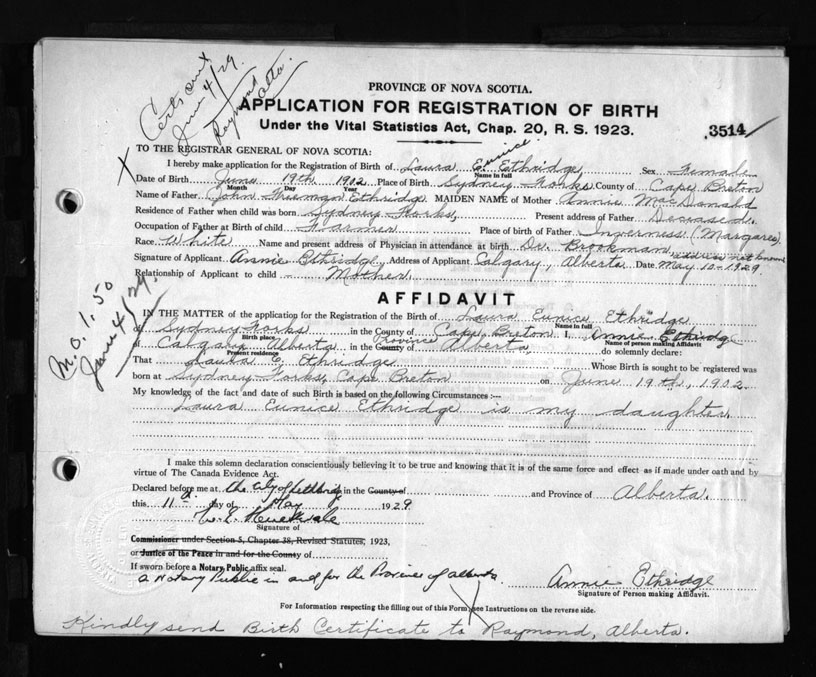 Certs sent
June 4/29.
Raymond
Alta.
PROVINCE OF NOVA SCOTIA.
APPLICATION FOR REGISTRATION OF BIRTH
Under the Vital Statistics Act, Chap. 20, R. S. 1923.
3514
X TO THE REGISTRAR GENERAL OF NOVA SCOTIA:
Eunice
I hereby make application for the Registration of Birth of Laura E. Ethridge, Sex Female
Name in full
Date of Birth June 19th 1902 Place of Birth Sydney Forks County of Cape Breton
Month Day Year
Name of Father John Freeman Ethridge MAIDEN NAME of Mother Annie MacDonald
Residence of Father when child was born Sydney Forks, Present address of Father Deceased.
Occupation of Father at Birth of child Farmer Place of birth of Father Inverness (Margaree)
Race White Name and present address of Physician in attendance at birth Dr. Brookman address not known
Signature of Applicant Annie Ethridge Address of Applicant Calgary, Alberta Date May 10-1929
Relationship of Applicant to child Mother
M.O. 1.50
June 4/29.
AFFIDAVIT
IN THE MATTER of the application for the Registration of the Birth of Laura Eunice Ethridge
Name in full
of Sydney Forks in the County of Cape Breton I, Annie Ethridge
Birth place Name of person making Affidavit
of Calgary Alberta in the County of Province Alberta, do solemnly declare:
Present residence
That Laura E. Ethridge Whose Birth is sought to be registered was
born at Sydney Forks, Cape Breton on June 19th, 1902
My knowledge of the fact and date of such Birth is based on the following Circumstances :—
Laura Eunice Ethridge is my daughter.
I make this solemn declaration conscientiously believing it to be true and knowing that it is of the same force and effect as if made under oath and by
virtue of The Canada Evidence Act.
Declared before me at the City of Lethbridge in the County of and Province of Alberta.
this 11th day of May 1929
Signature of
Commissioner under Section 5, Chapter 38, Revised Statutes, 1923,
or Justice of the Peace in and for the County of
If sworn before a Notary Public affix seal.
a Notary Public in and for the Province of Alberta. Annie Ethridge
Signature of Person making Affidavit.
For Information respecting the filling out of this Form, see Instructions on the reverse side.
Kindly send Birth Certificate to Raymond, Alberta.